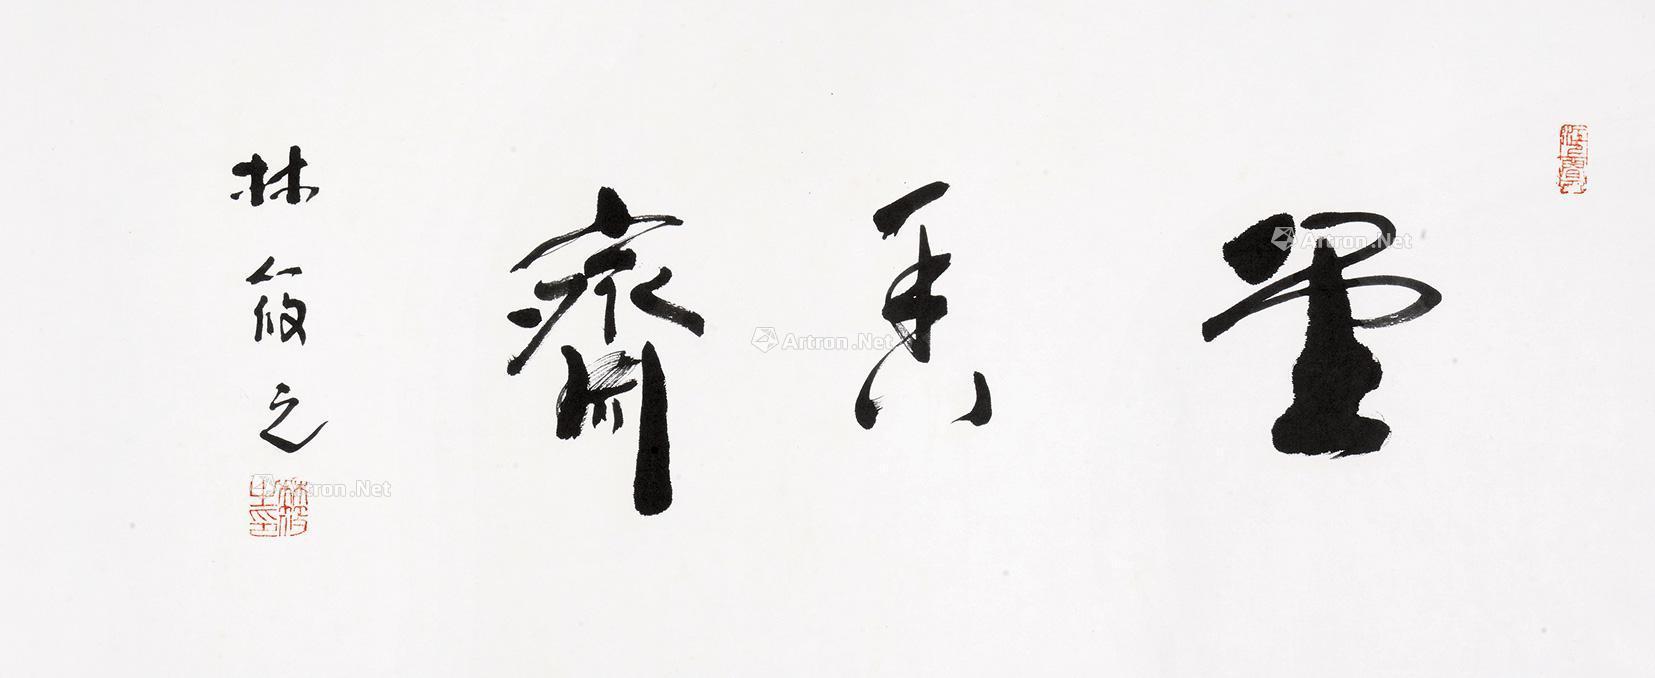 墨香齋
林筱之
林筱之印
Artron.Net
Artron.Net
Artron.Net